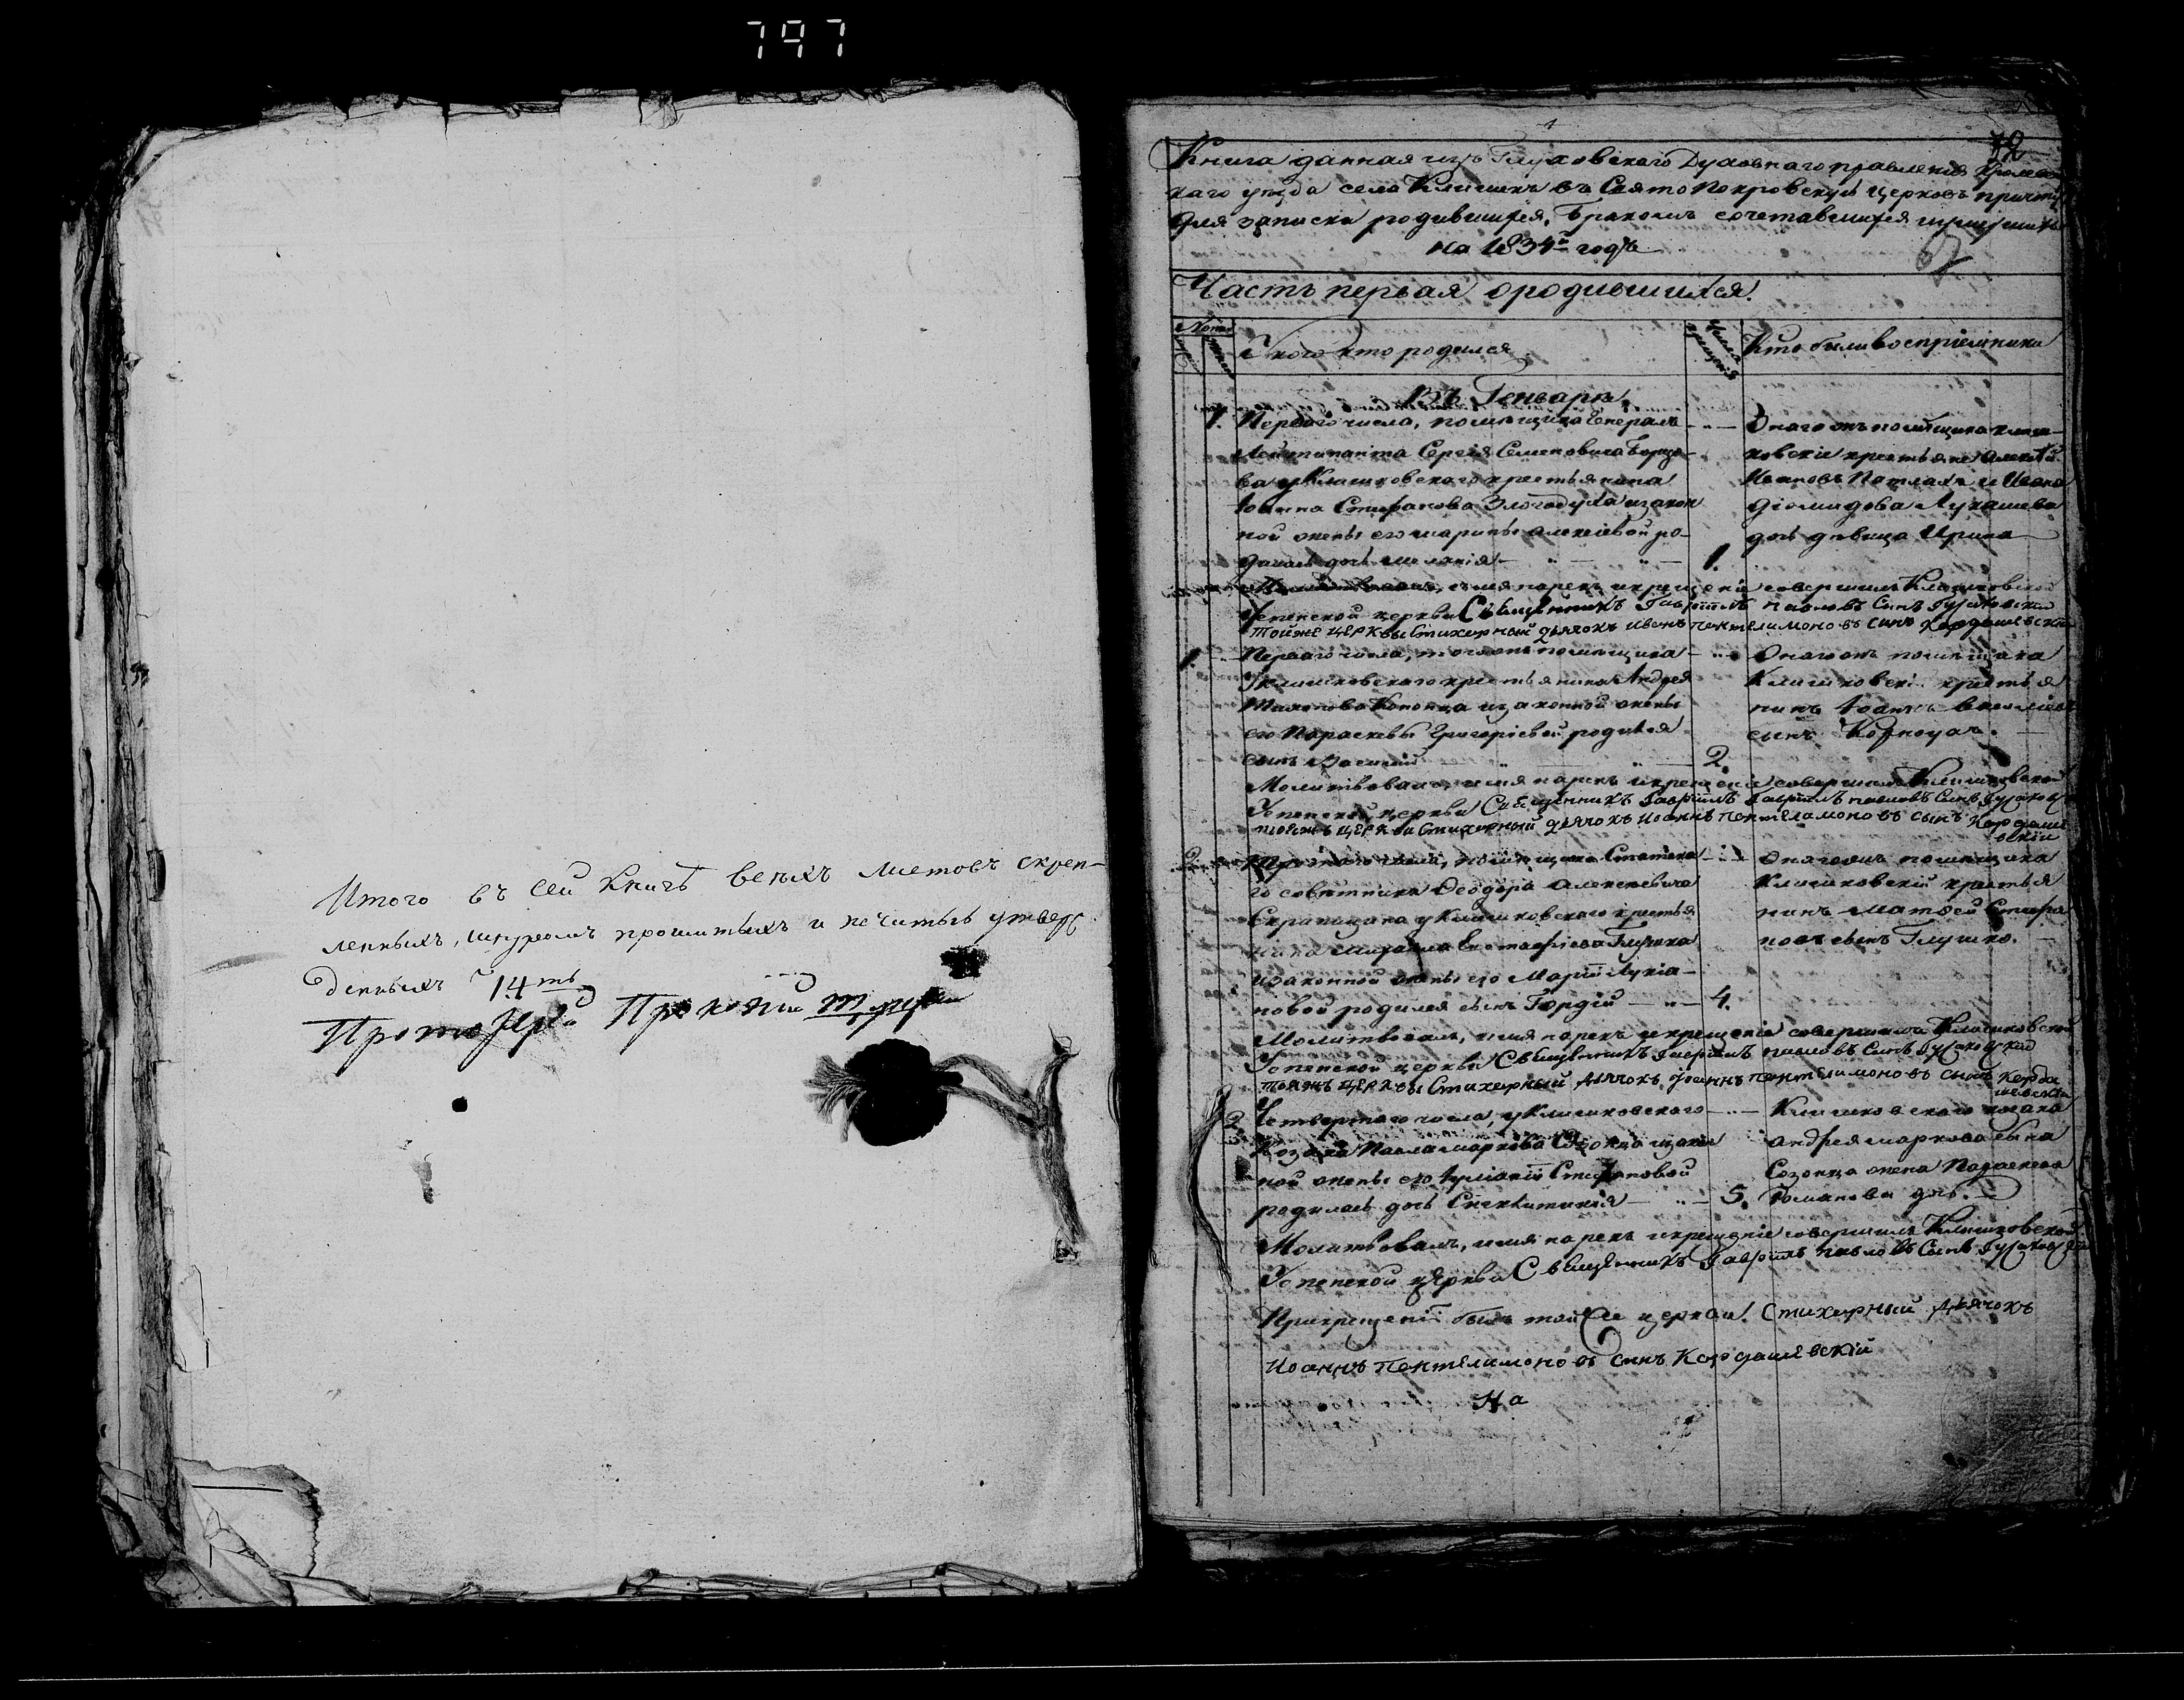 797
Итого въ сей Книгѣ бѣлыхъ листовъ скреп-
ленныхъ, шнуромъ прошитыхъ и печатью утверж
денныхъ 14ть
Протоіерей Прокопій
72
Книга данная изъ Глуховскаго Духовнаго правленія Кролевец
каго уѣзда села Клишекъ въ Свято Покровскую церковь причту
для записки родившихся, бракомъ сочетавшихся и умершихъ
на 1834й годъ
Часть первая о родившихся.
У кого кто родился
Числа крещенія
Кто были воспріемники
Въ Генварѣ.
1. Перваго числа, помѣщика Генералъ
Лейтинанта Сергія Семеновича
ва у Клишковскаго крестьянина
Іоанна Стефанова Злогодуха изъ закон
ной жены его Марины Алексіевой ро-
дилась дочь Меланія 1.
Онагожъ помѣщика клиш-
ковскіе крестьяне Алексѣй
Ивановъ и Ивана
Діомидова Лукашева
дочь дѣвица Ирина
имя нарекъ и крещеніе совершилъ Клишковской
Успенской церкви Священникъ Гавріилъ Павловъ Сынъ
тойже церквы Стихарный дьячокъ Иванъ Пентелимоновъ сынъ Кордашевскій
1. Перваго числа, тогожъ помѣщика
У клишковскаго крестьянина Андрея
Конопца изъ законной жены
его Параскевы Григоріевой родился
сынъ Василій 2.
Онагожъ помѣщика
Клишковскій крестья
нинъ Іоаннъ Василіевъ
сынъ
Молитвовалъ, имя нарекъ и крещеніе совершилъ Клишковской
Успенской церкви Священникъ Гавріилъ Гавріилъ Павловъ Сынъ
тояжъ церкви Стихарный дьячокъ Иоаннъ Пентелимоновъ сынъ Кордаше
вскій
2. числа, помѣщика Статска
го совѣтника Ѳеодора Алексеевича
Скрипицына у Клишковскаго крестья
нина Михаила Евстафіева Глушка
изъ законной жены его Маріи Лукіа-
новой родился сынъ Гордій 4.
Онагожъ помѣщика
Клишковскій крестья
нинъ Матѳей Стефа
новъ сынъ Глушко.
Молитвовалъ, имя нарекъ и крещеніе совершилъ Клишковской
Успенской церкви Священникъ Гавріилъ Павловъ Сынъ
тояжъ церквы Стихарный дьячокъ Иоаннъ Пентелимоновъ сынъ Корда
шевскій
2 Четвертаго числа, у Клишковскаго
Козака Павла Маркова Созонца изъ закон
ной жены его Іуліаніи Стефановой
родилась дочь Сигклитикія 5.
Клишковскаго козака
Андрея Маркова сына
Созонца жена Параскева
Романова дочь.
Молитвовалъ, имя нарекъ и крещеніе совершилъ Клишковской
Успенской церкви Священникъ Гавріилъ Павловъ Сынъ
При крещеніи былъ той же церкви Стихарный дьячокъ
Иоаннъ Пентелимоновъ сынъ Кордашевскій
На